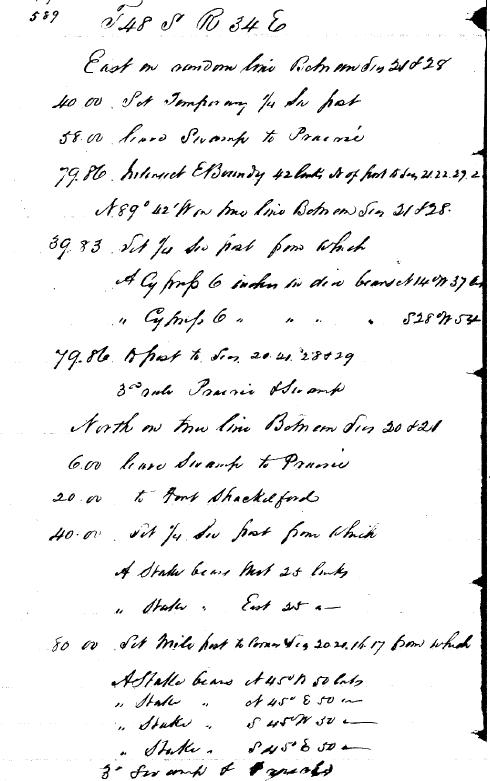 589 T 48 S R 34 E
East on random line Betwen Secs 21 & 28
40.00 Set Temporary 1/4 Sec post
58.00 leave Swamp to Prairie
79.86 Intersect E Boundy 42 links N of post to Secs 21 22. 27. 2
N 89° 42' W on true line Betwen Secs 21 & 28.
39.83 Set 1/4 Sec post from Which
A Cypress 6 inches in dia bears N 14° W 37
" Cypress 6 " " " " S 28° W 54
79.86 to post to Secs. 20. 21. 28 & 29
3d rate Prairie & Swamp
North on true line Betwen Secs 20 & 21
6.00 leave Swamp to Prairie
20.00 to Fort Shackelford
40.00 Set 1/4 Sec post from Which
A Stake bears West 25 links
" Stake " East 25 "
80 00 Set Mile post to Corner Secs 20 21. 16 17 from which
A Stake bears N 45° W 50 links
" Stake " N 45° E 50 "
" Stake " S 45° W 50 "
" Stake " S 45° E 50 "
3d Swamp &